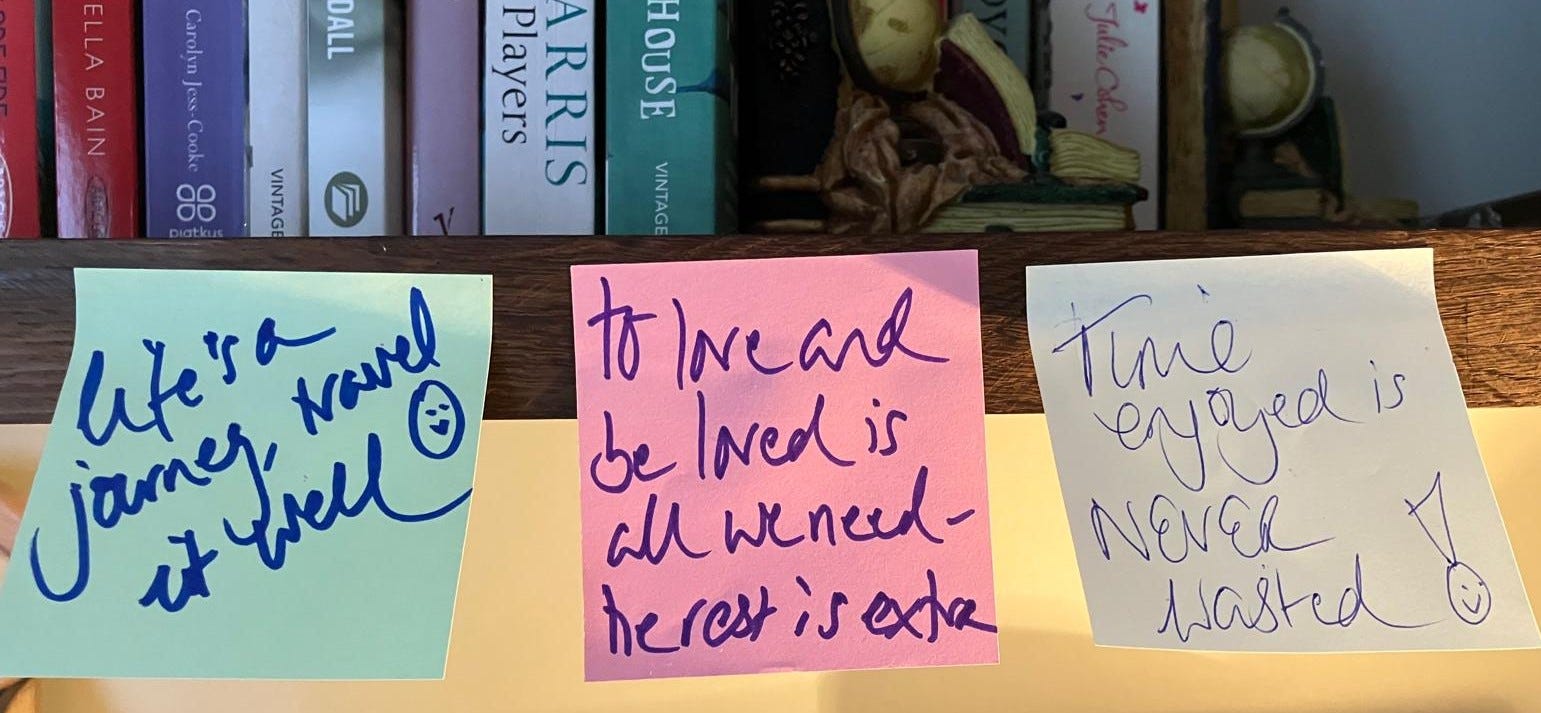 ELLA BAIN
Carolyn Jess-Cooke
piatkus
VINTAGE
DALL
ARRIS
Players
HOUSE
VINTAGE
Julie Cohen
life's a
journey, travel
it well
to love and
be loved is
all we need-
the rest is extra
Time
enjoyed is
NEVER
wasted!